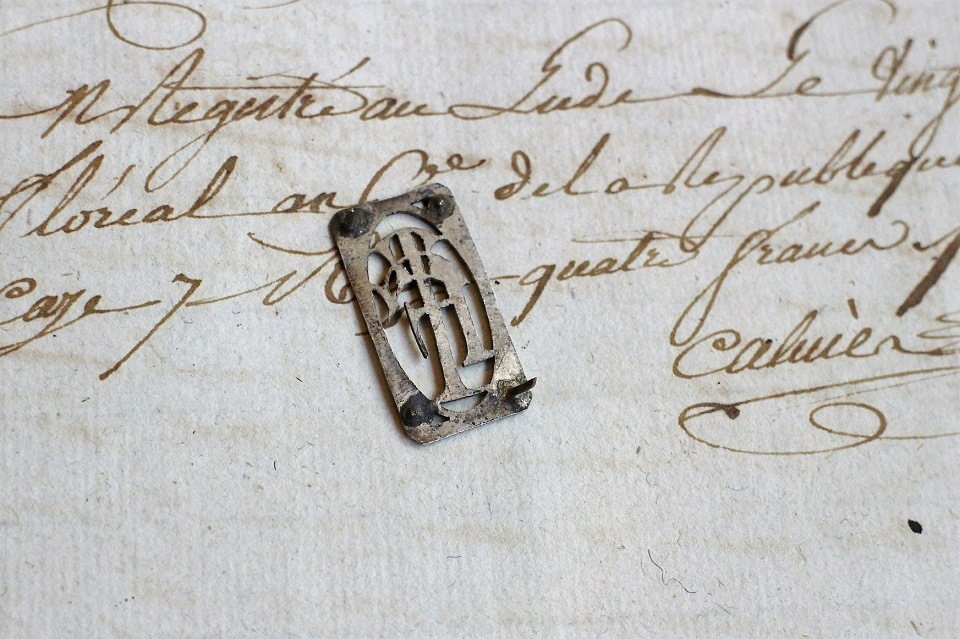 Registré au Lude Le Ving
floréal an de la Republique
Caze 7 quatre francs
Cahier